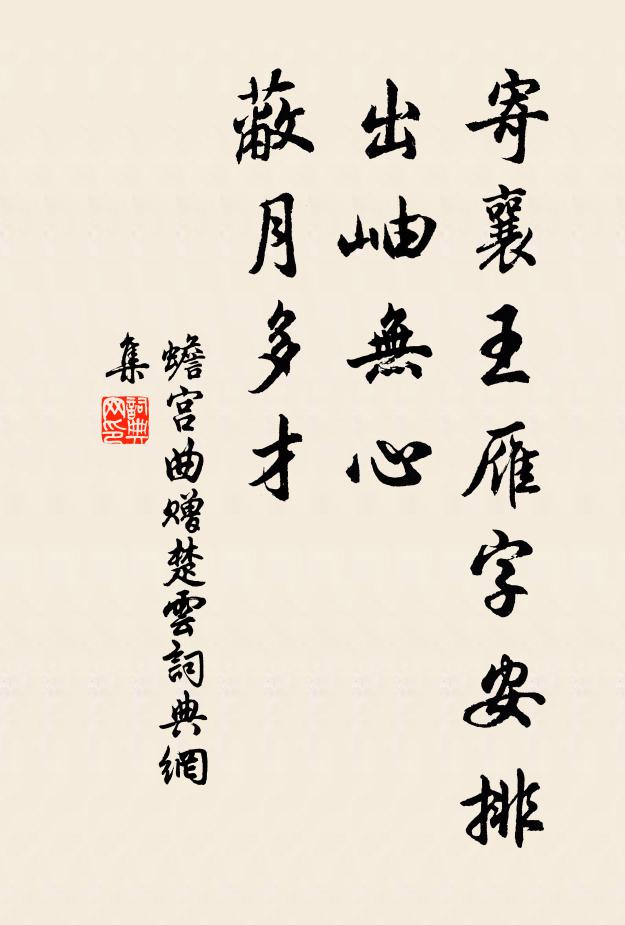 寄襄王雁字安排
出岫無心
蔽月多才
蟾宮曲贈楚雲詞典網
集
詞典网印